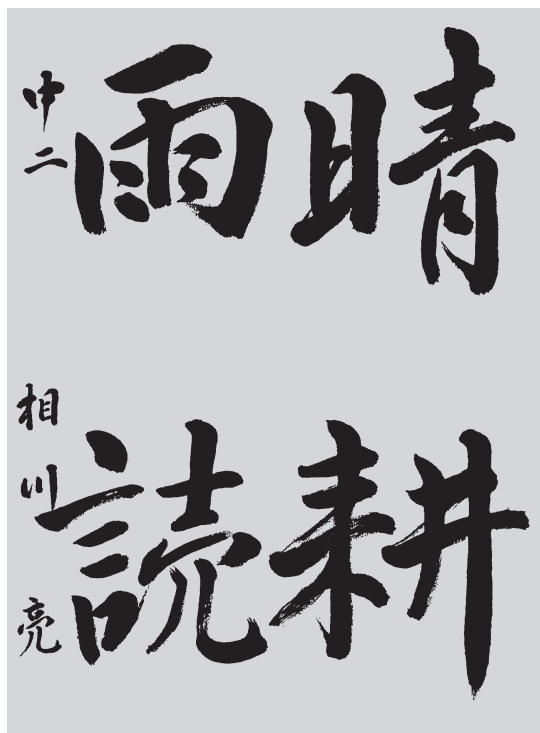 晴耕
雨読
中二 相川 亮